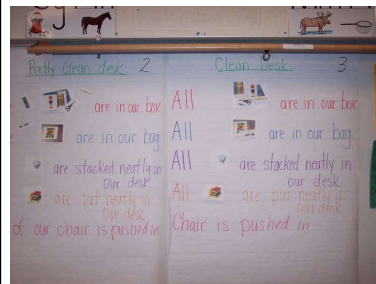 Pretty Clean desk 2
are in our box
are in our bag
are stacked neatly in
our desk.
are put neatly in
our desk
of our chair is pushed in
Clean Desk 3
All are in our box
All are in our bag
All are stacked neatly in
our desk.
All are put neatly in
our desk
Chair is pushed in